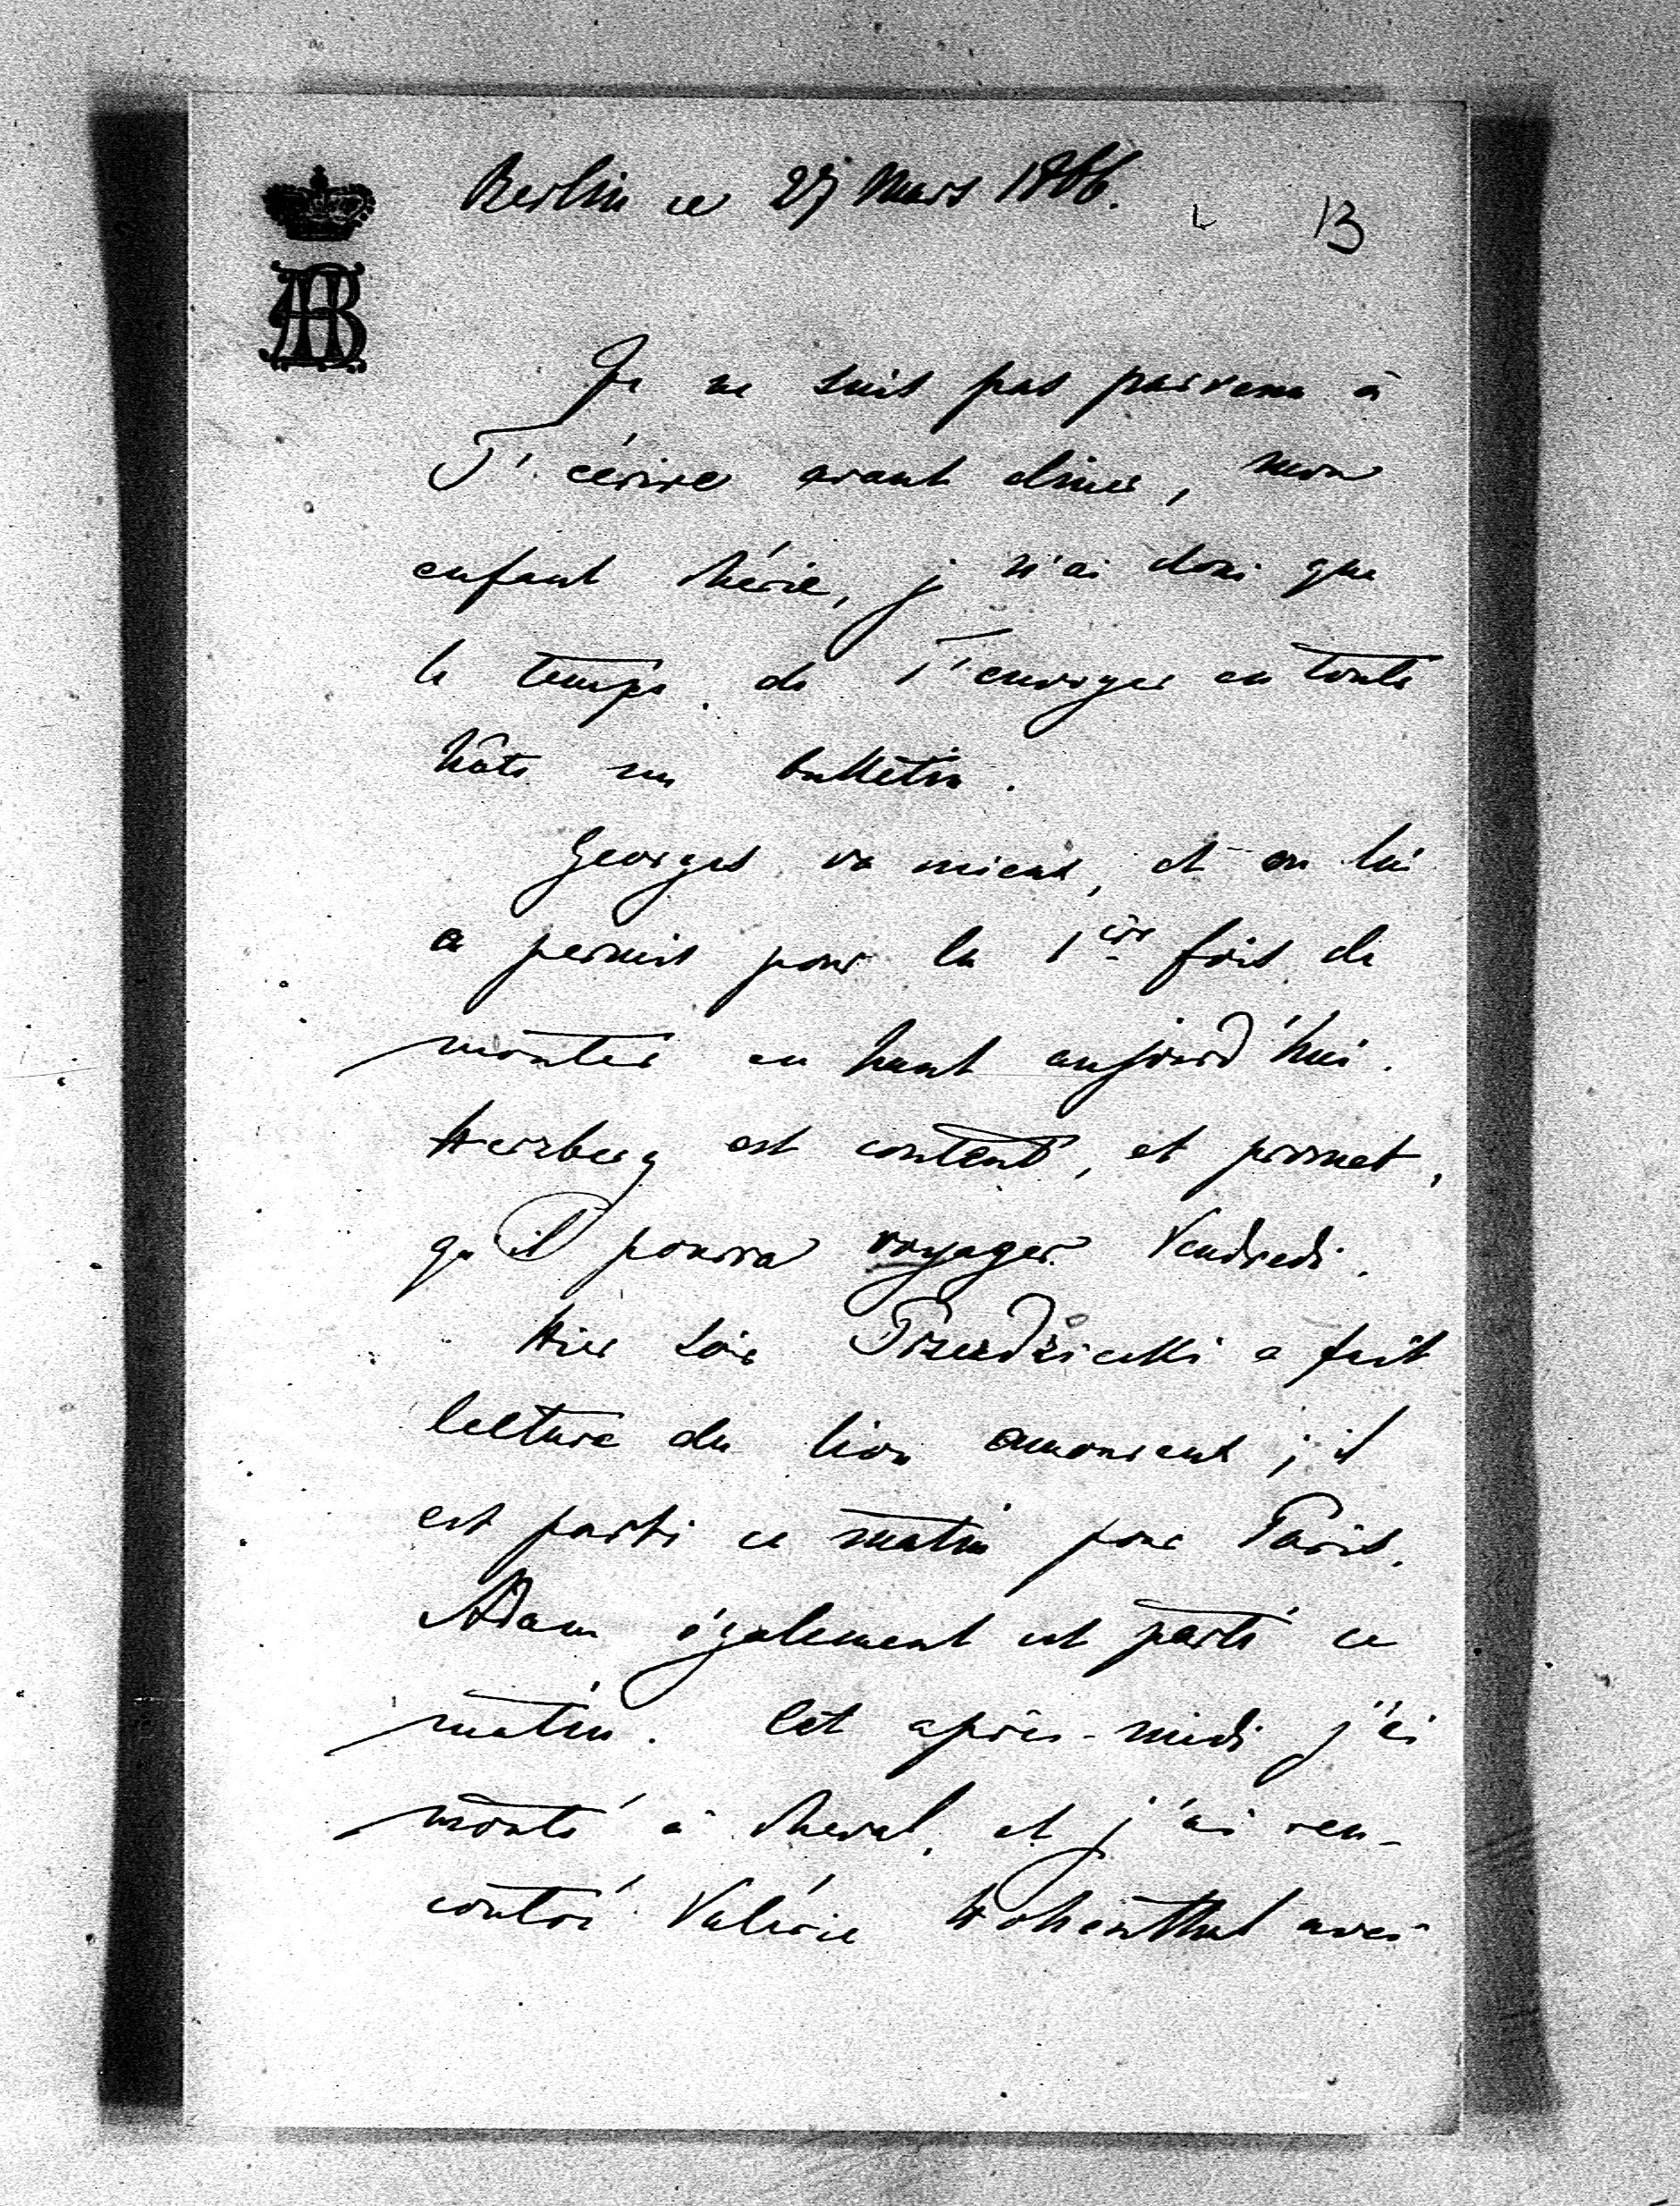 Berlin ce 27 Mars 1866.
13
AB
Je ne suis pas parvenu à
T'écrire avant dîner, mon
enfant chérie, je n'ai donc que
le temps de T'envoyer en toute
hâte un bulletin.
Georges va mieux, et on lui
a permis pour la 1ère fois de
monter en haut aujourd'hui.
Herzberg est content, et promet,
qu'il pourra voyager Vendredi.
Hier soir Przezdziecki a fait
lecture du lion amoureux; il
est parti ce matin pour Paris.
Adam également est parti ce
matin. Cet après-midi j'ai
monté à cheval, et j'ai ren-
contré Valérie Hohenthal avec